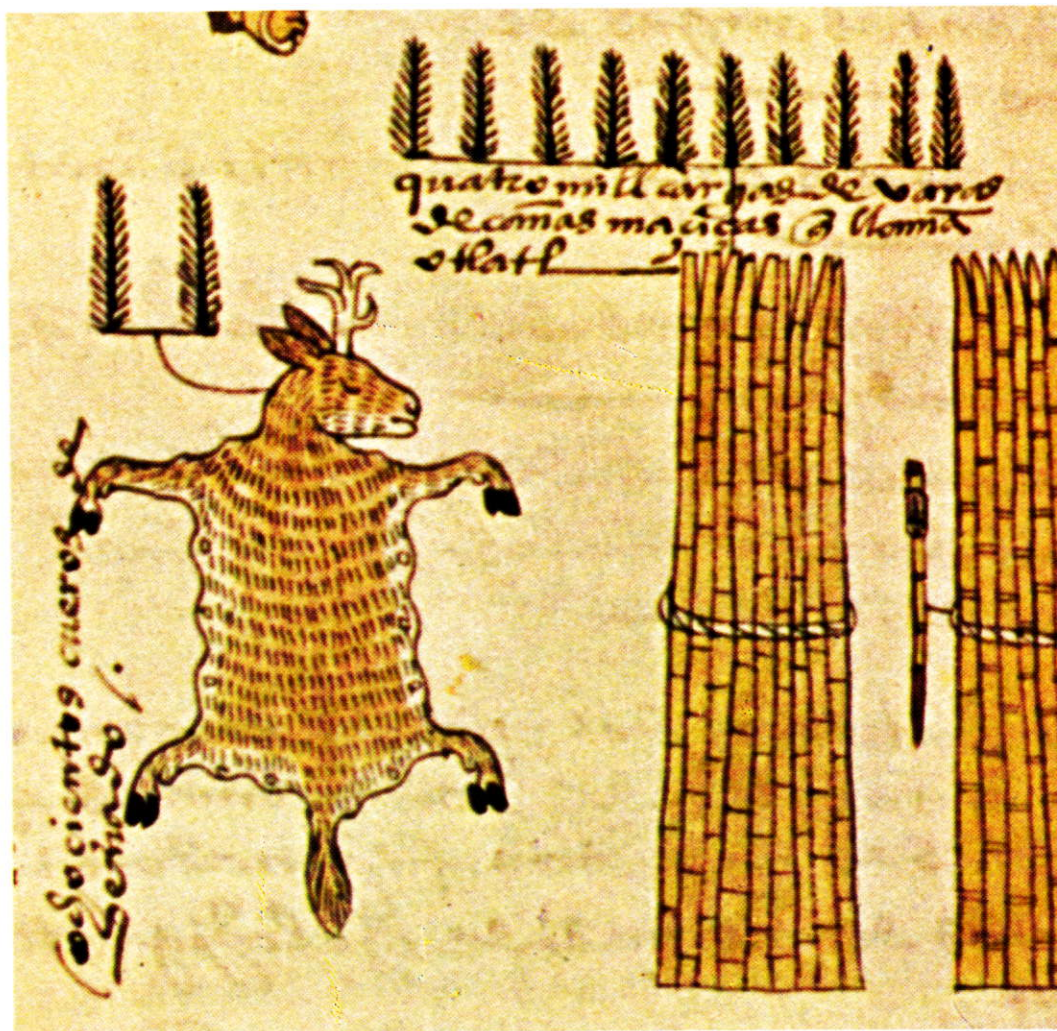 quatro mill cargas de varas
de cañas maçiças q̃ llamã
otlatl
ochocientos cueros de
benado /.